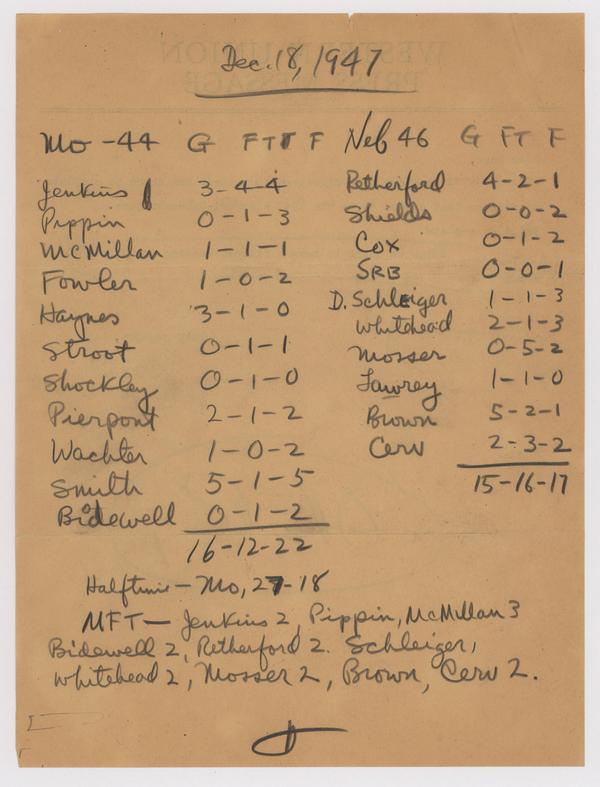 Dec. 18, 1947
Mo - 44 G FT F Neb 46 G FT F
Jenkins 3-4-4 Retherford 4-2-1
Pippin 0-1-3 Shields 0-0-2
McMillan 1-1-1 Cox 0-1-2
Fowler 1-0-2 SRB 0-0-1
Haynes 3-1-0 D. Schleiger 1-1-3
Stroot 0-1-1 Whitehead 2-1-3
Shockley 0-1-0 Mosser 0-5-2
Pierpont 2-1-2 Lawrey 1-1-0
Wachter 1-0-2 Brown 5-2-1
Smith 5-1-5 Cerv 2-3-2
Bidewell 0-1-2 15-16-17
16-12-22
Halftime - Mo, 27-18
MFT - Jenkins 2, Pippin, McMillan 3
Bidewell 2, Retherford 2. Schleiger,
Whitehead 2, Mosser 2, Brown, Cerv 2.